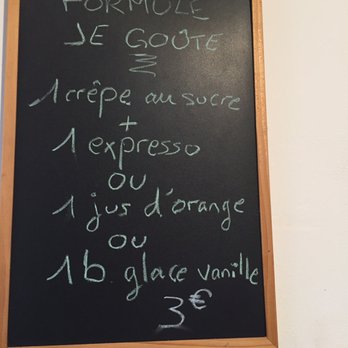 FORMULE
JE GOÛTE
1 crêpe au sucre
+
1 expresso
OU
1 jus d'orange
ou
1 b. glace vanille
3€